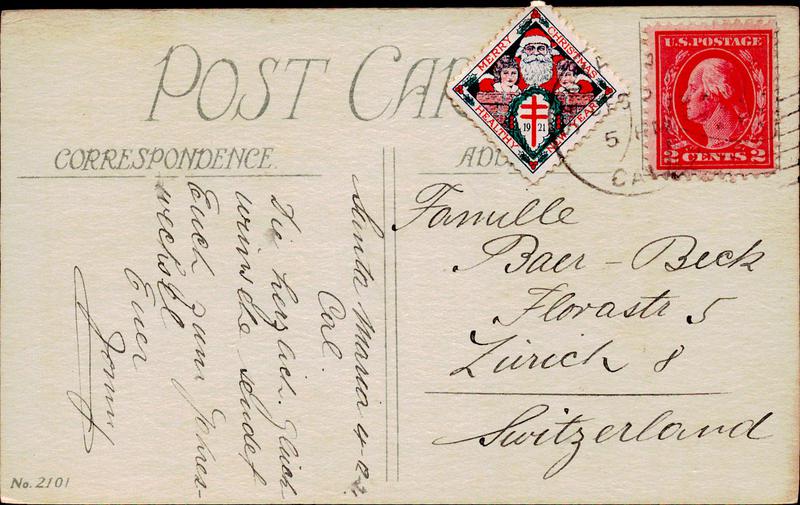 POST CAR
CORRESPONDENCE
ADD
MERRY CHRISTMAS
HEALTHY NEW YEAR
1921
U.S. POSTAGE
2 CENTS 2
5
CAL
Santa Maria 4-12
Cal.
Die herzlich. Glück
wünsche sendet
Euch zum Jahres-
wechsel
Euer
Familie
Baer - Beck
Florastr 5
Zürich 8
Switzerland
No. 2101